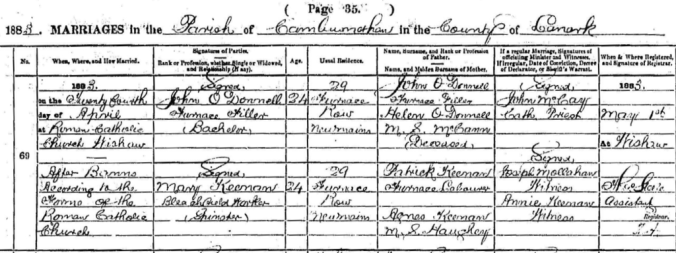 ( Page 35. )
1883. MARRIAGES in the Parish of Cambusnethan in the County of Lanark
No. When, Where, and How Married. Signatures of Parties. Rank or Profession, whether Single or Widowed, and Relationship (if any). Age. Usual Residence. Name, Surname, and Rank or Profession of Father. Name, and Maiden Surname of Mother. If a regular Marriage, Signatures of officiating Minister and Witnesses. If irregular, Date of Conviction, Decree of Declarator, or Sheriff's Warrant. When & Where Registered, and Signature of Registrar.
1883. Signed 29 John O'Donnell Signed 1883.
on the Twenty Fourth John O'Donnell 24 Furnace Furnace Filler John McCay
day of April Furnace Filler Row Helen O'Donnell Cath. Priest May 1st
at Roman Catholic Bachelor Newmains M.S. McCann
Church Wishaw Deceased At Wishaw
69 Signed
After Banns Signed 29 Patrick Keenan Joseph Mollahan
According to the Mary Keenan 24 Furnace Furnace Labourer Witness
Forms of the Bleachfield Worker Row Annie Keenan Assistant
Roman Catholic (Spinster) Newmains Agnes Keenan Witness Registrar.
Church M.S. Haughey